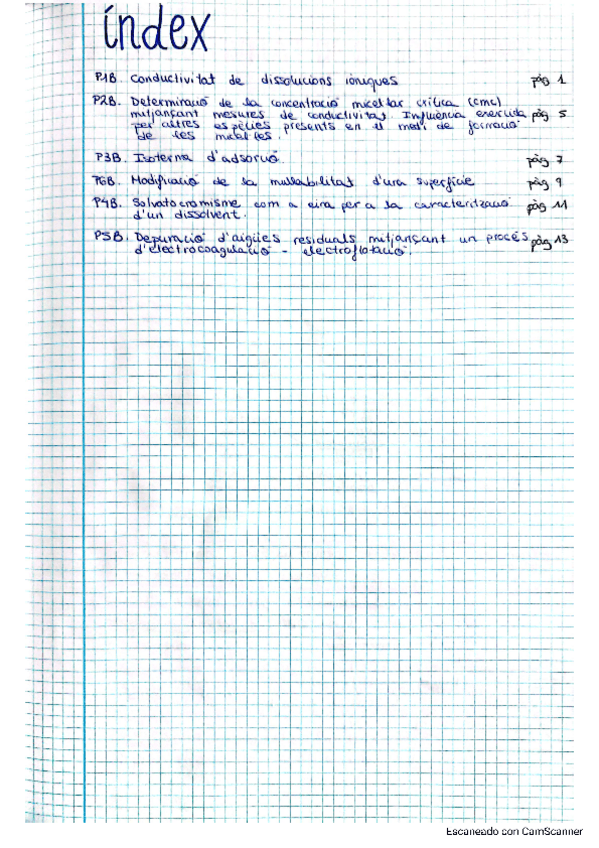 índex
P1B. Conductivitat de dissolucions iòniques pàg 1
P2B. Determinació de la concentració micel·lar crítica (cmc)
mitjançant mesures de conductivitat. Influència exercida pàg 5
per altres espècies presents en el medi de formació
de les micel·les.
P3B. Isoterma d'adsorció. pàg 7
P6B. Modificació de la mullabilitat d'una superfície pàg 9
P4B. Solvatocromisme com a eina per a la caracterització pàg 11
d'un dissolvent.
P5B. Depuració d'aigües residuals mitjançant un procés pàg 13
d'electrocoagulació - electroflotació.
Escaneado con CamScanner